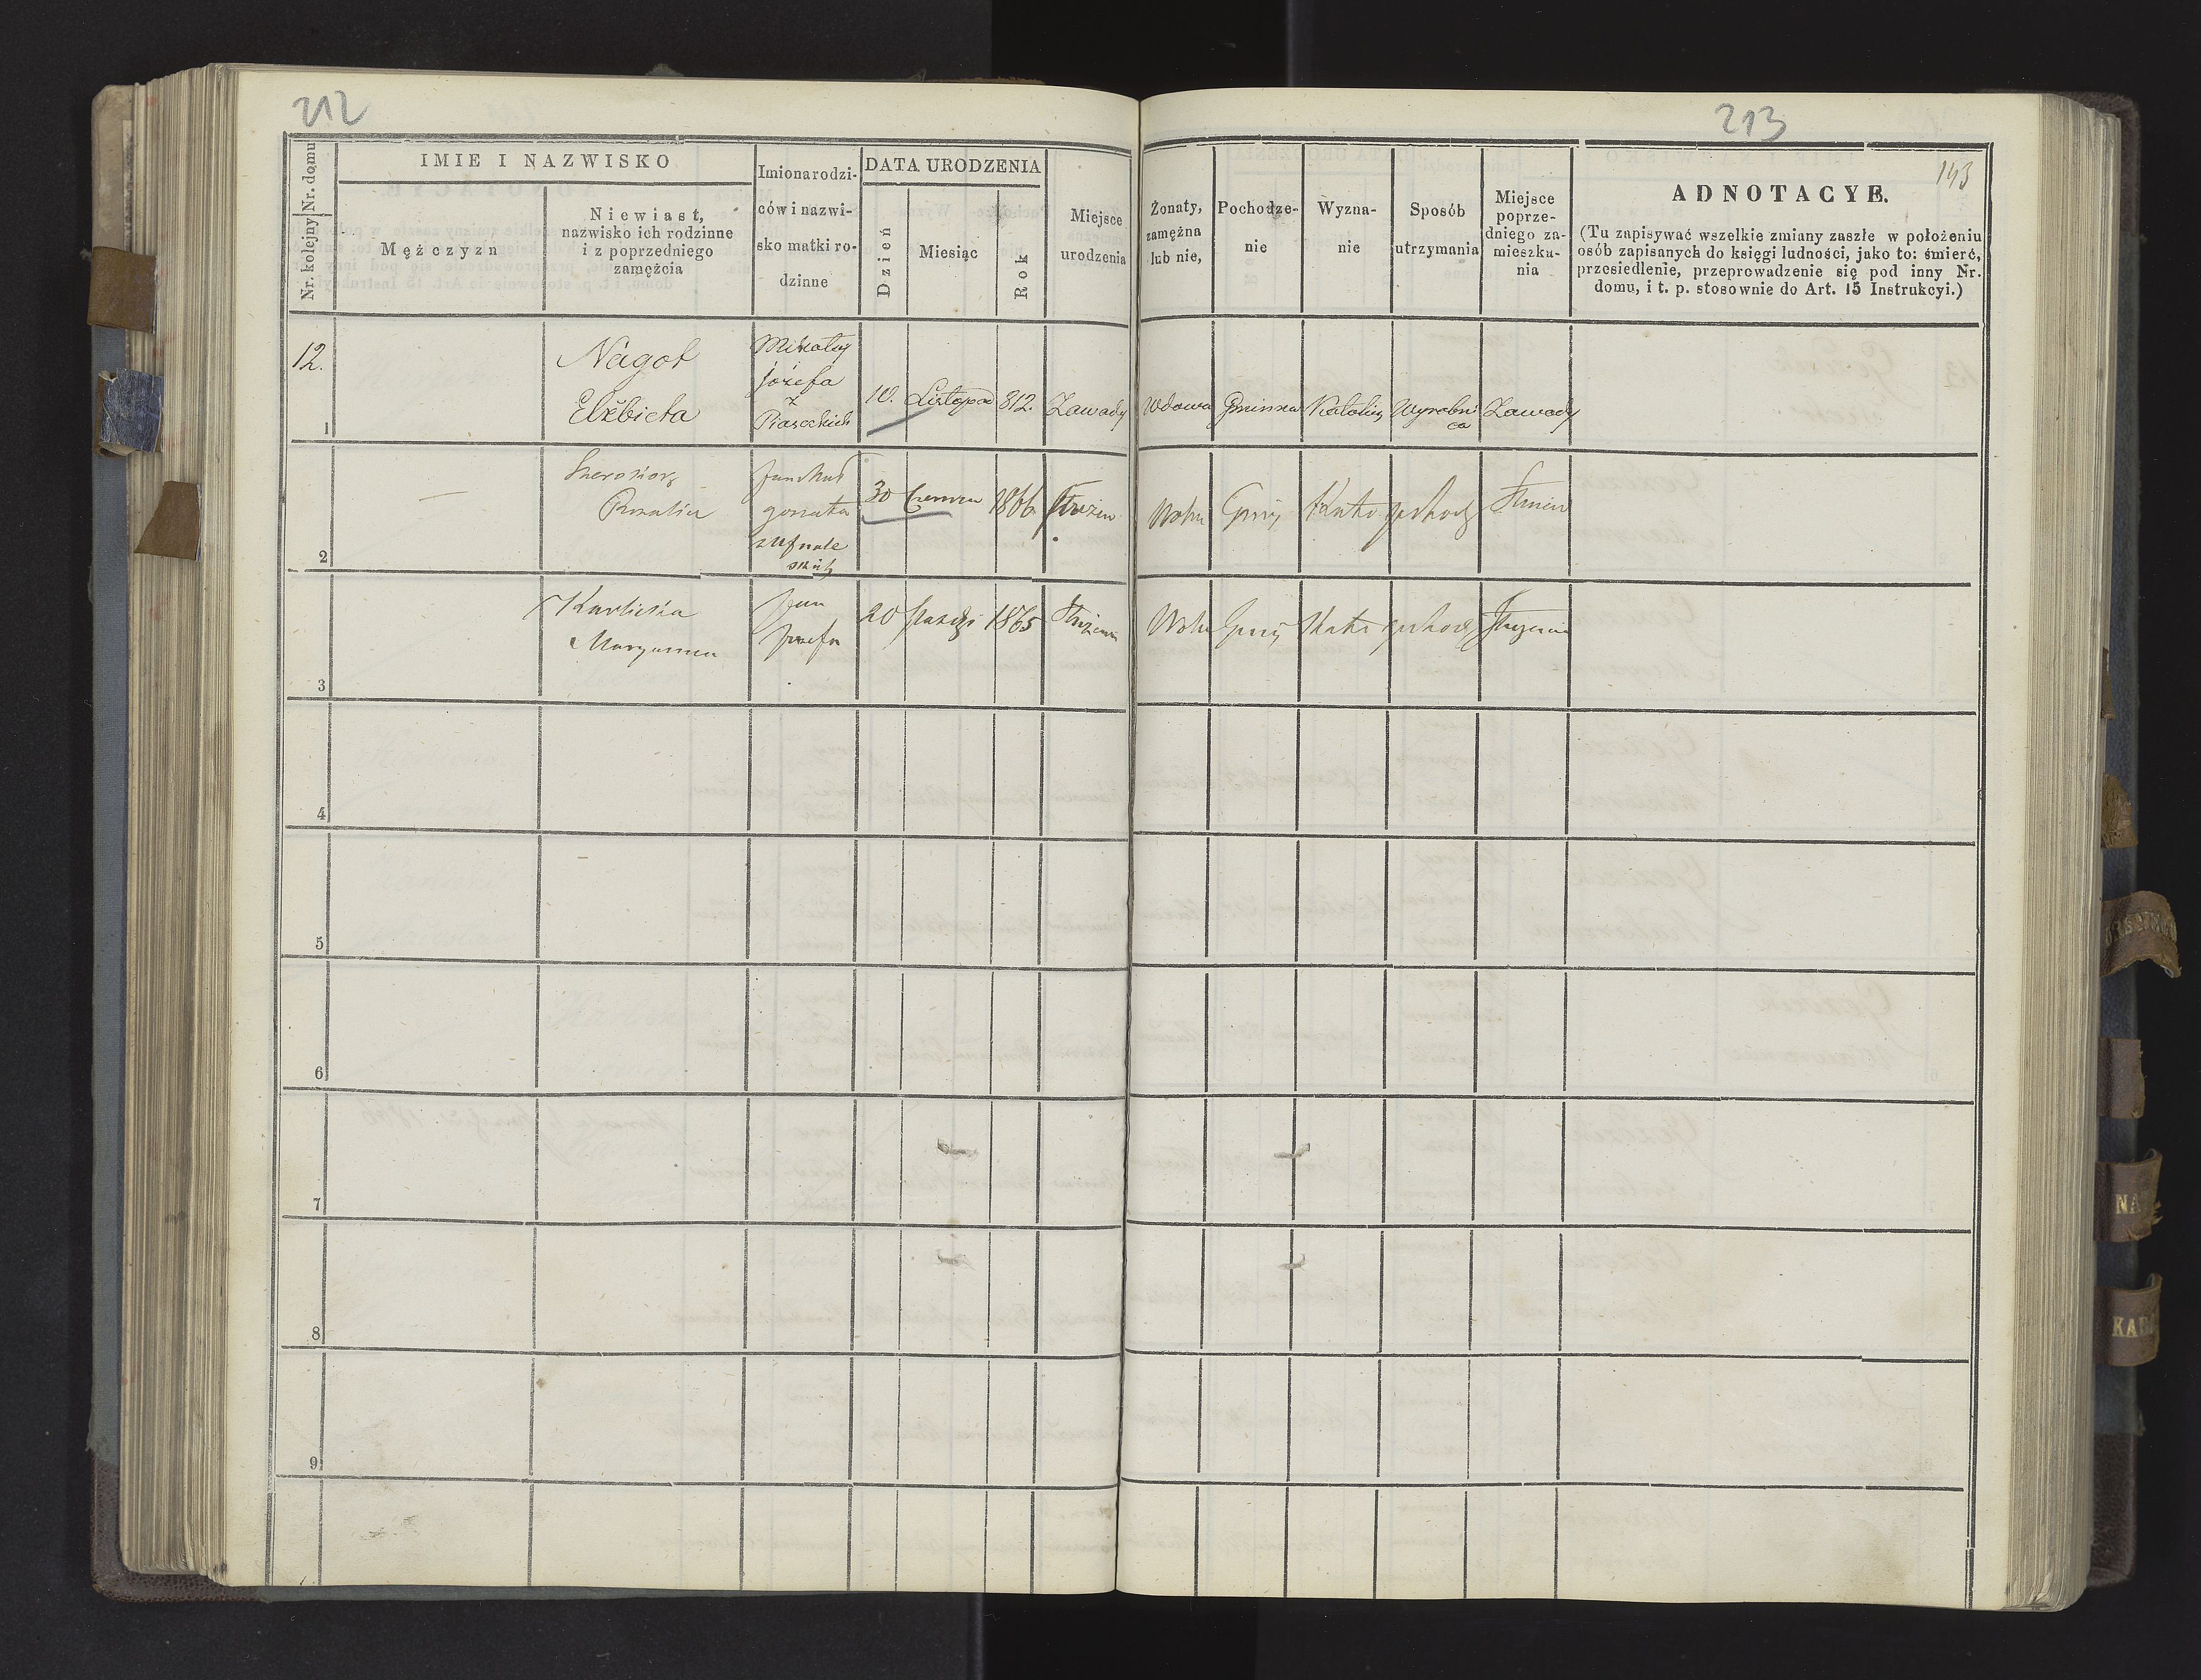 212
213
143
Nr. domu
Nr. kolejny
IMIE I NAZWISKO
Mężczyzn
Niewiast,
nazwisko ich rodzinne
i z poprzedniego
zamęźcia
Imiona rodzi-
ców i nazwi-
sko matki ro-
dzinne
DATA URODZENIA
Dzień
Miesiąc
Rok
Miejsce
urodzenia
Żonaty,
zamężna
lub nie,
Pochodze-
nie
Wyzna-
nie
Sposób
utrzymania
Miejsce
poprze-
dniego za-
mieszka-
nia
ADNOTACYE.
(Tu zapisywać wszelkie zmiany zaszłe w położeniu
osób zapisanych do księgi ludności, jako to: śmierć,
przesiedlenie, przeprowadzenie się pod inny Nr.
domu, i t. p. stosownie do Art. 15 Instrukcyi.)
12.
1
Nagot
Elżbieta
Mikołaj
józefa
z
Piaseckich
10. Listopad 812. Zawady
Wdowa Gminna Katolicz Wyrobni
ca
Zawady
2
Rozalia
30 Czerwca 1866
Wolna
3
Karlicka
Maryanna
Jan
Józefa
20 1865
Wolna
4
5
6
7
8
9
NA
KAR